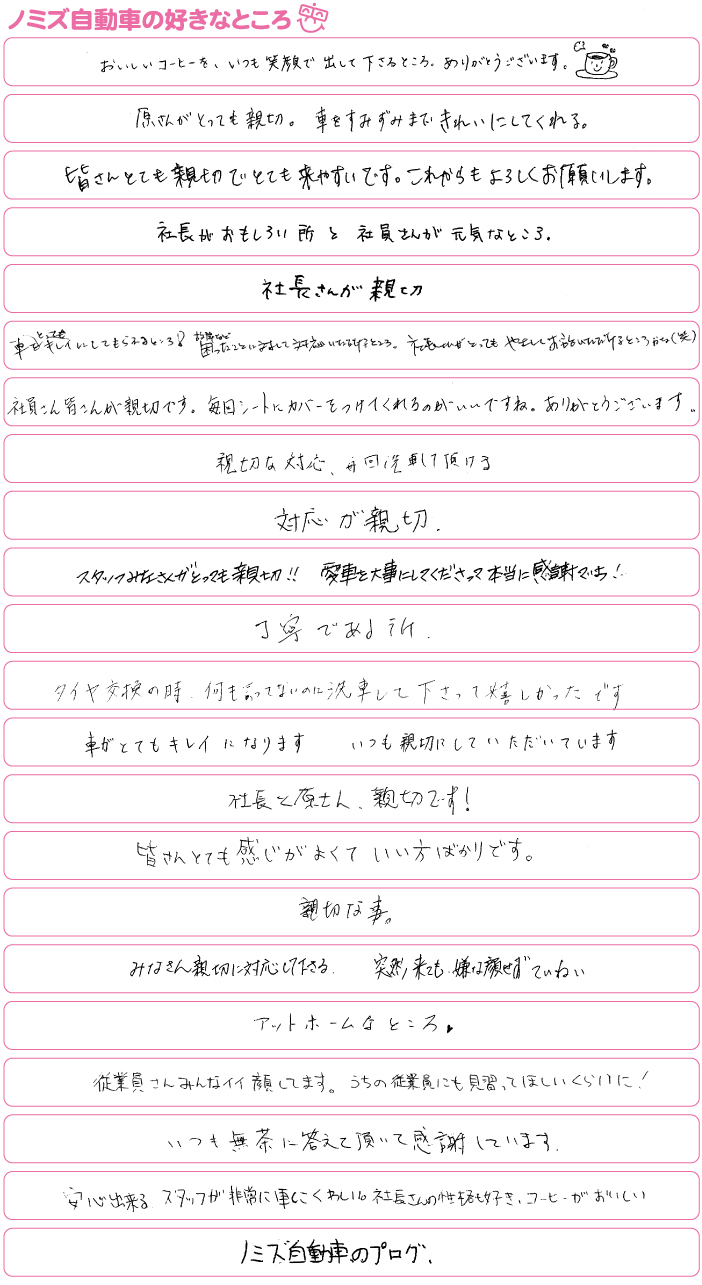 ノミズ自動車の好きなところ
おいしいコーヒーを、いつも笑顔で出して下さるところ。ありがとうございます。
原さんがとっても親切。車をすみずみまできれいにしてくれる。
皆さんとても親切でとても来やすいです。これからもよろしくお願いします。
社長がおもしろい所と社員さんが元気なところ。
社長さんが親切
車をとってもキレイにしてもらえるところ♪ 困ったことにまして対応いただけるところ。社長さんがとってもやさしくお話いただけるところかな(笑)
社員さん皆さんが親切です。毎回シートにカバーをつけてくれるのがいいですね。ありがとうございます。
親切な対応、毎回洗車して頂ける
対応が親切.
スタッフみなさんがとっても親切!! 愛車を大事にしてくださって本当に感謝でいっぱい!
丁寧である所.
タイヤ交換の時、何も言ってないのに洗車して下さって嬉しかったです
車がとてもキレイになります いつも親切にしていただいています
社長と原さん、親切です!
皆さんとても感じがよくていい方ばかりです。
親切な事。
みなさん親切に対応して下さる. 突然来ても嫌な顔せずていねい
アットホームなところ♥
従業員さんみんなイイ顔してます。うちの従業員にも見習ってほしいくらいに!
いつも無茶に答えて頂いて感謝しています.
安心出来る スタッフが非常に車にくわしい。社長さんの性格も好き、コーヒーがおいしい
ノミズ自動車のブログ.